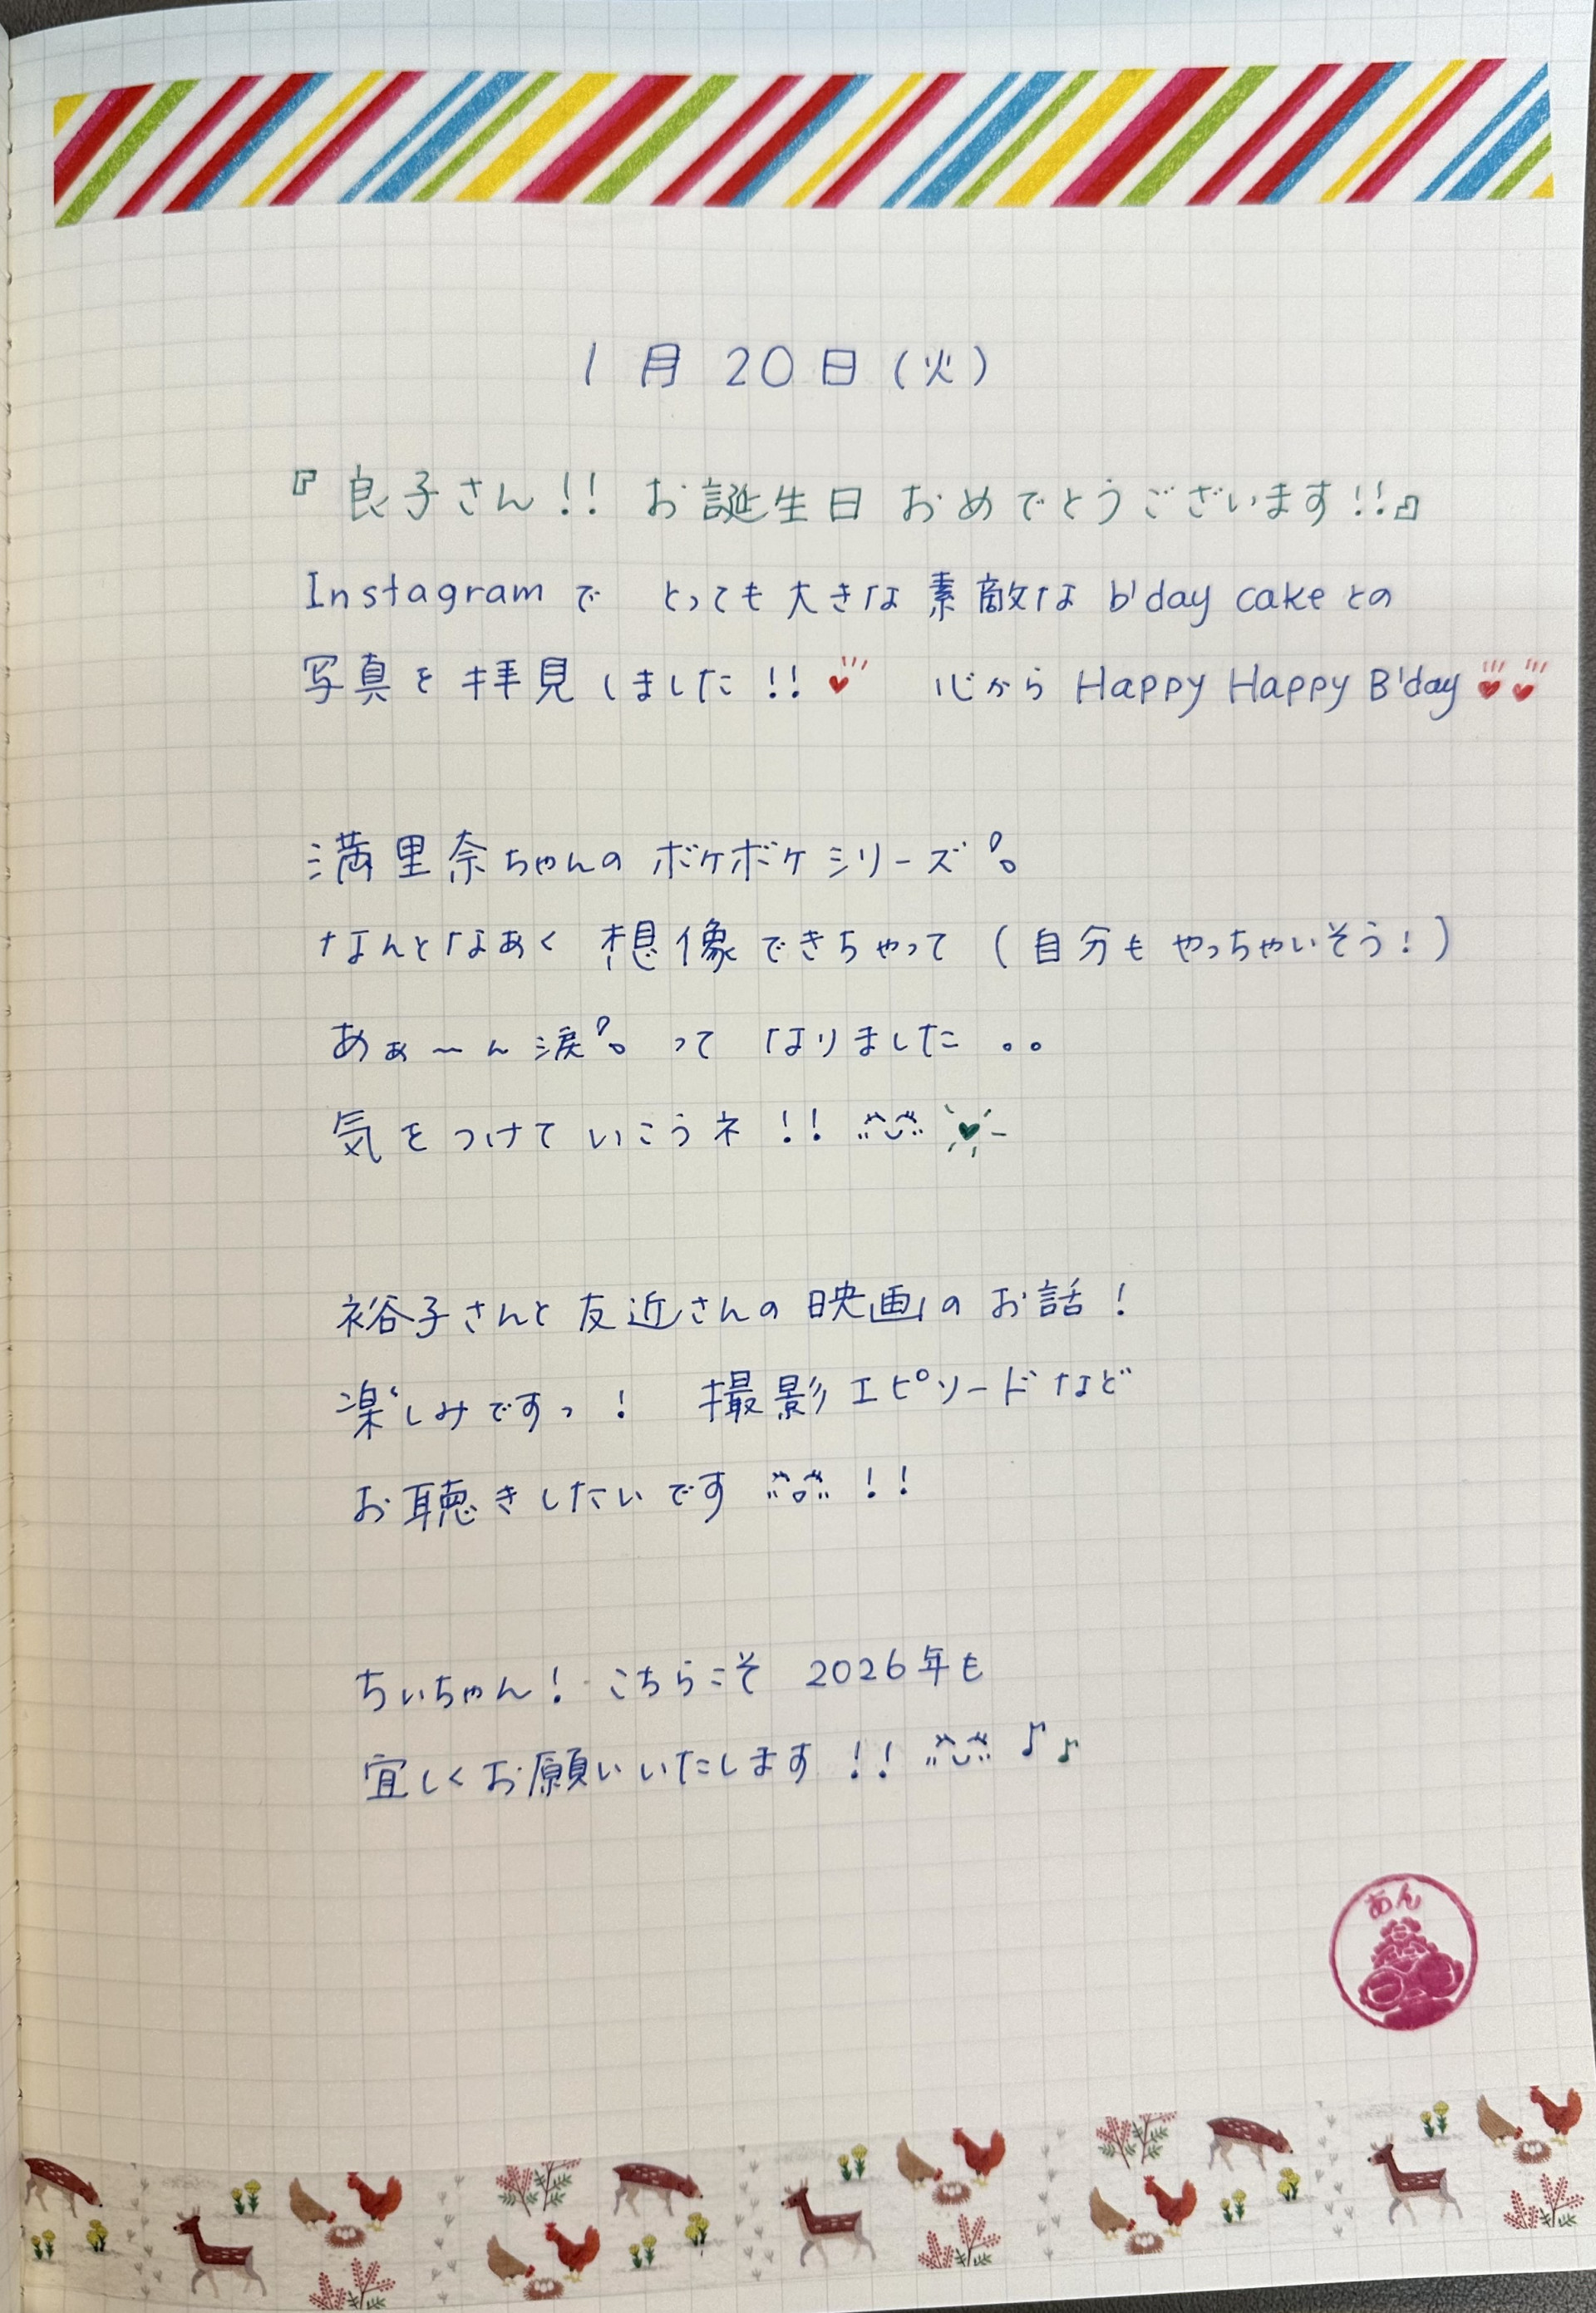 1月20日(火)
『良子さん!! お誕生日 おめでとうございます!!』
Instagramで とっても大きな素敵な b'day cakeとの
写真を拝見しました!! 心から Happy Happy B'day
満里奈ちゃんの ボケボケシリーズ
なんとなあく 想像できちゃって (自分も やっちゃいそう!)
あぁ〜ん涙 って なりました 。。
気をつけて いこうネ !!
裕子さんと 友近さんの 映画の お話!
楽しみですっ! 撮影エピソードなど
お聴きしたいです !!
ちぃちゃん! こちらこそ 2026年も
宜しくお願いいたします!! ♪♪
あん